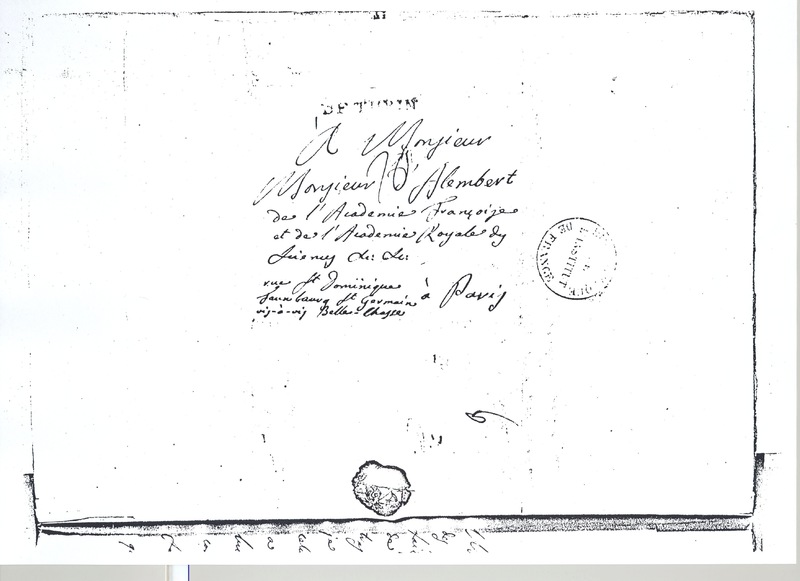 DE TURIN
A Monsieur
Monsieur D'Alembert
de l'Academie Françoise
et de l'Academie Royale des
Sciences &c: &c:
rue St Dominique
Faunbourg St Germain à Paris
vis-à-vis Belle-Chasse
DE L'INSTITUT
DE FRANCE